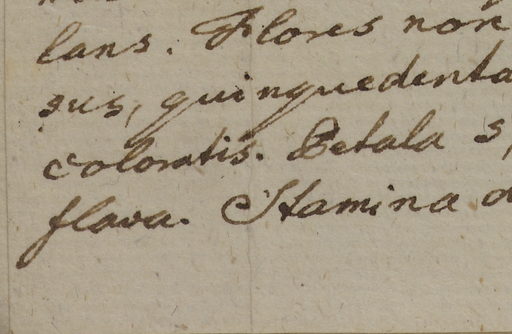 lans. Flores non
sus, quinquedenta
coloratis. Petala s
flava. Stamina